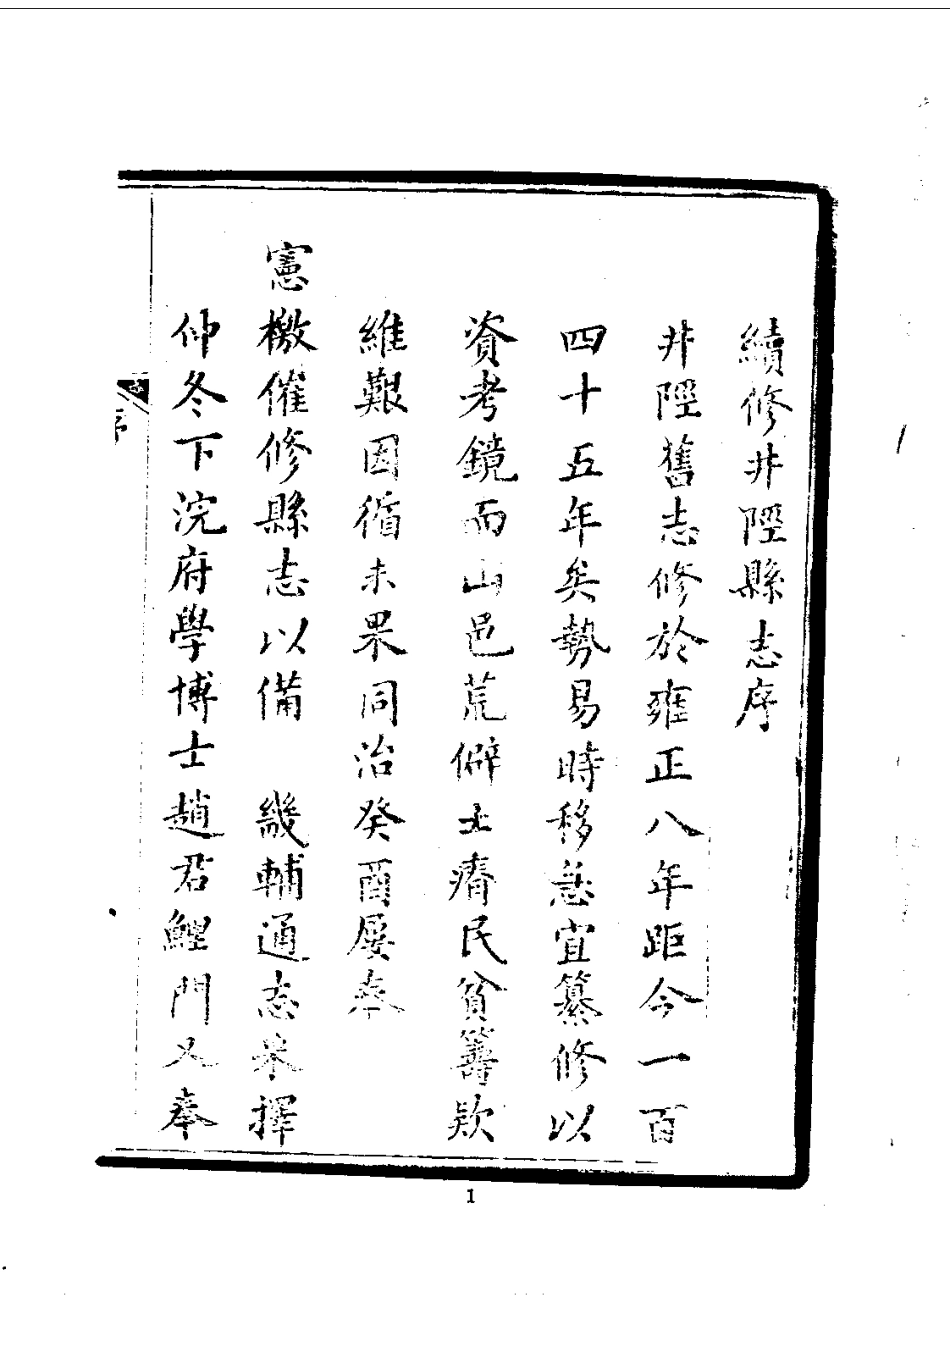 續修井陘縣志序
井陘舊志修於雍正八年距今一百
四十五年矣勢易時移急宜纂修以
資考鏡而山邑荒僻土瘠民貧籌欵
維艱因循未果同治癸酉屡奉
憲檄催修縣志以備　畿輔通志采擇
仲冬下浣府學博士趙君鯉門又奉
序
1